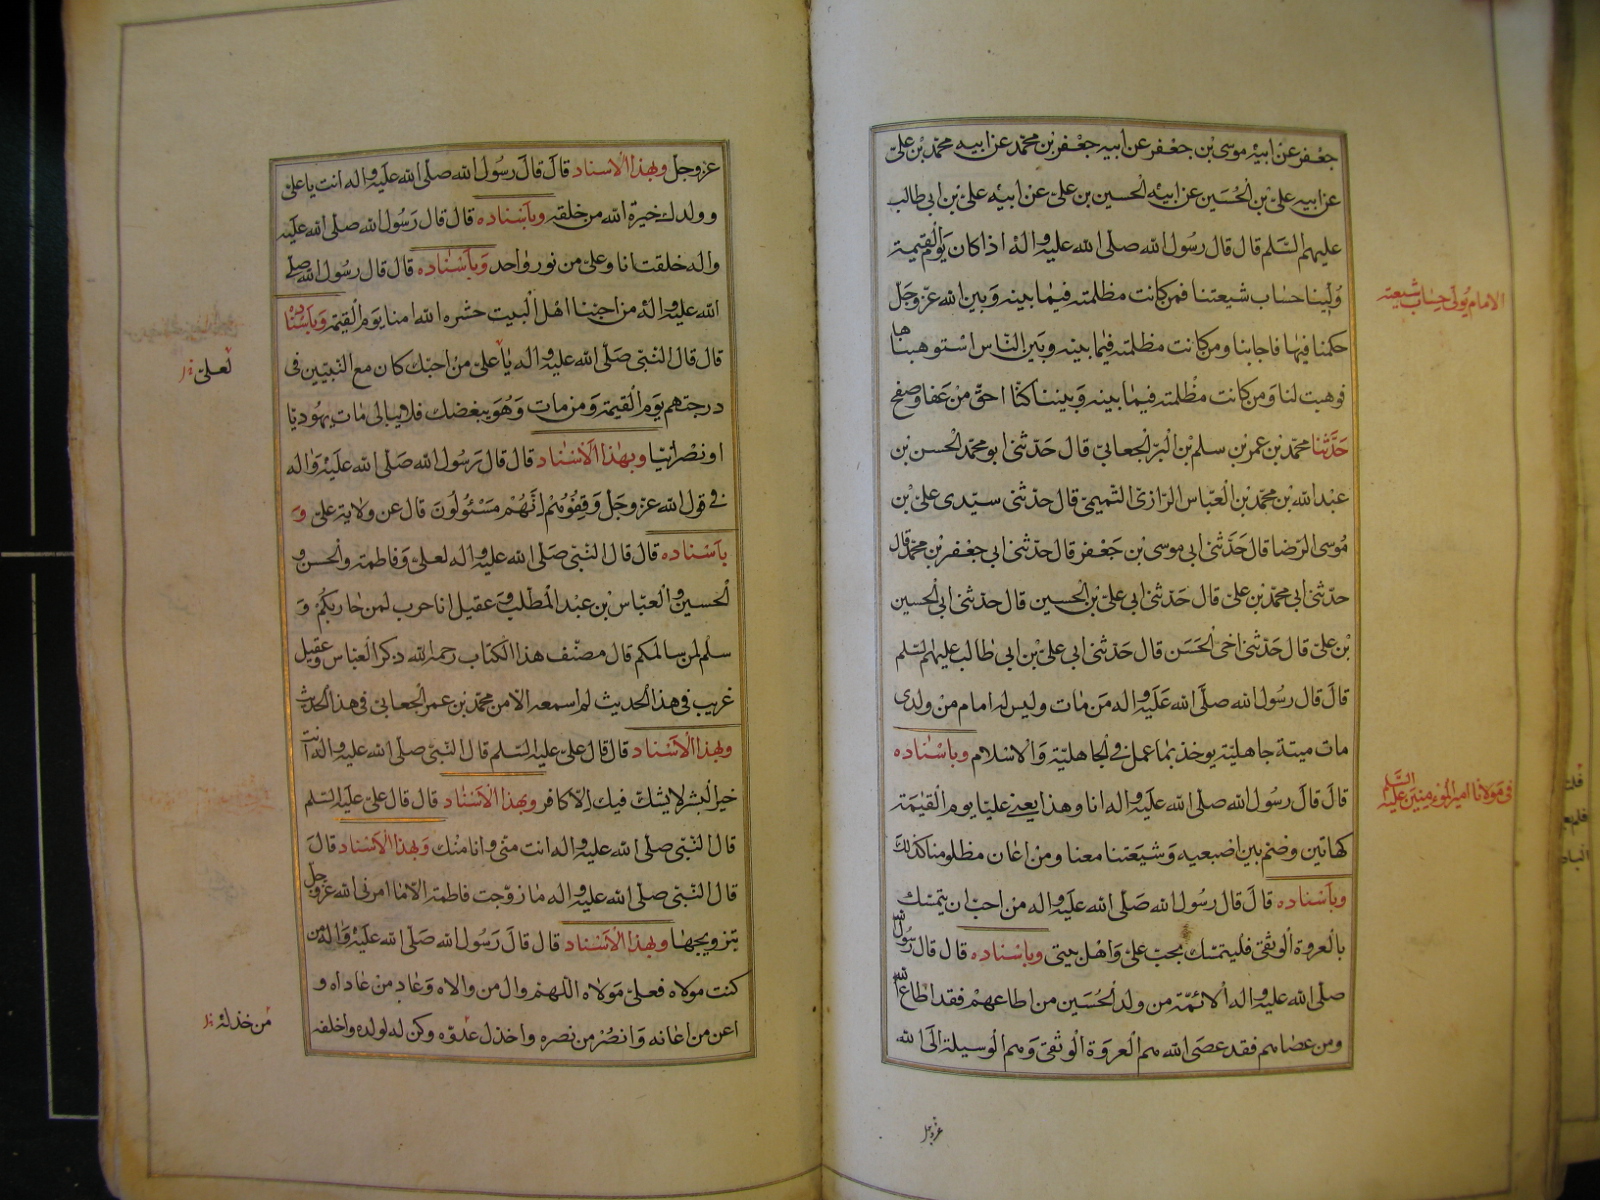 جعفر عن ابيه موسى بن جعفر عن ابيه جعفر بن محمد عن ابيه محمد بن علي
عن ابيه علي بن الحسين عن ابيه الحسين بن علي عن ابيه علي بن ابي طالب
عليهم السلم قال قال رسول الله صلى الله عليه واله اذا كان يوم القيمة
ولينا حساب شيعتنا فمن كانت مظلمته فيما بينه وبين الله عز وجل
حكمنا فيها فاجابنا ومن كانت مظلمته فيما بينه وبين الناس استوهبناها
فوهبت لنا ومن كانت مظلمته فيما بينه وبيننا كنا احق من عفا وصفح
حدثنا محمد بن عمر بن سلم بن البر الجعابي قال حدثني ابو محمد الحسن بن
عبد الله بن محمد بن العباس الرازي التميمي قال حدثني سيدي علي بن
موسى الرضا قال حدثني ابي موسى بن جعفر قال حدثني ابي جعفر بن محمد قال
حدثني ابي محمد بن علي قال حدثني ابي علي بن الحسين قال حدثني ابي الحسين
بن علي قال حدثني اخي الحسن قال حدثني ابي علي بن ابي طالب عليهم السلم
قال قال رسول الله صلى الله عليه واله من مات وليس له امام من ولدي
مات ميتة جاهلية يوخذ بما عمل في الجاهلية والاسلام وباسناده
قال قال رسول الله صلى الله عليه واله انا وهذا يعني عليا يوم القيمة
كهاتين وضم بين اصبعيه وشيعتنا معنا ومن اعان مظلومنا كذلك
وباسناده قال قال رسول الله صلى الله عليه واله من احب ان يتمسك
بالعروة الوثقى فليتمسك بحب علي واهل بيتي وباسناده قال قال رسول الله
صلى الله عليه واله الائمة من ولد الحسين من اطاعهم فقد اطاع الله
ومن عصاهم فقد عصى الله هم العروة الوثقى وهم الوسيلة الى الله
عز وجل
الامام يولى حساب شيعته
في مولانا امير المومنين عليه السلم
عز وجل وبهذا الاسناد قال قال رسول الله صلى الله عليه واله انت يا علي
وولدك خيرة الله من خلقه وباسناده قال قال رسول الله صلى الله عليه
واله خلقت انا وعلي من نور واحد وباسناده قال قال رسول الله صلى
الله عليه واله من احبنا اهل البيت حشره الله امنا يوم القيمة وباسناده
قال قال النبي صلى الله عليه واله يا علي من احبك كان مع النبيين في
درجتهم يوم القيمة ومن مات وهو يبغضك فلا يبالي مات يهوديا
او نصرانيا وبهذا الاسناد قال قال رسول الله صلى الله عليه واله
في قول الله عز وجل وقفوهم انهم مسئولون قال عن ولاية علي و
باسناده قال قال النبي صلى الله عليه واله لعلي وفاطمة والحسن و
الحسين والعباس بن عبد المطلب وعقيل انا حرب لمن حاربكم و
سلم لمن سالمكم قال مصنف هذا الكتاب رحمه الله ذكر العباس وعقيل
غريب في هذا الحديث لم اسمعه الا من محمد بن عمر الجعابي في هذا الحديث
وبهذا الاسناد قال قال علي عليه السلم قال النبي صلى الله عليه واله انت
خير البشر لا يشك فيك الا كافر وبهذا الاسناد قال قال علي عليه السلم
قال النبي صلى الله عليه واله انت مني وانا منك وبهذا الاسناد قال
قال النبي صلى الله عليه واله ما زوجت فاطمة الا ما امرني الله عز وجل
بتزويجها وبهذا الاسناد قال قال رسول الله صلى الله عليه واله من
كنت مولاه فعلي مولاه اللهم وال من والاه وعاد من عاداه و
اعن من اعانه وانصر من نصره واخذل عدوه وكن له لولده واخلفه
لعلي
من خذله